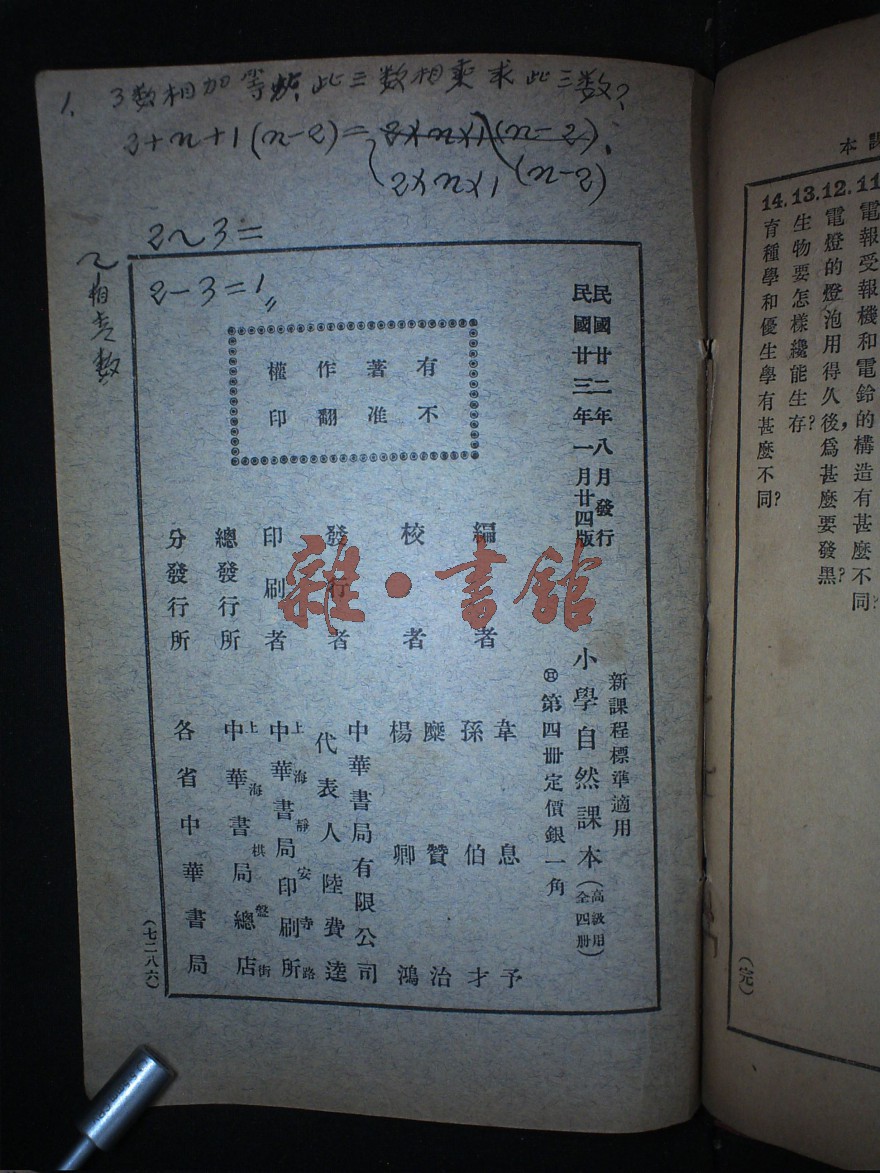 1. 3数相加等於此三数相乘求此三数?
2+n+1(n-2)=2×n×1(n-2).
(2×n×1(n-2)
2~3=
2-3=1〃
~相差数
有著作權
不准翻印
民國廿二年八月發行
民國廿三年一月廿四版
新課程標準適用
小學自然課本(高級用全四册)
第四册定價銀一角
編者 韋息予 孫伯才
校者 糜贊治 楊卿鴻
發行者 中華書局有限公司 代表人陸費逵
印刷者 上海靜安寺路 中華書局印刷所
總發行所 上海棋盤街 中華書局總店
分發行所 各省中華書局
(七二八六)
雜·書館
課本
11.電報受報機和電鈴的構造有甚麼不同?
12.電燈的燈泡用得久後,爲甚麼要發黑?
13.生物要怎樣纔能生存?
14.育種學和優生學有甚麼不同?
(完)